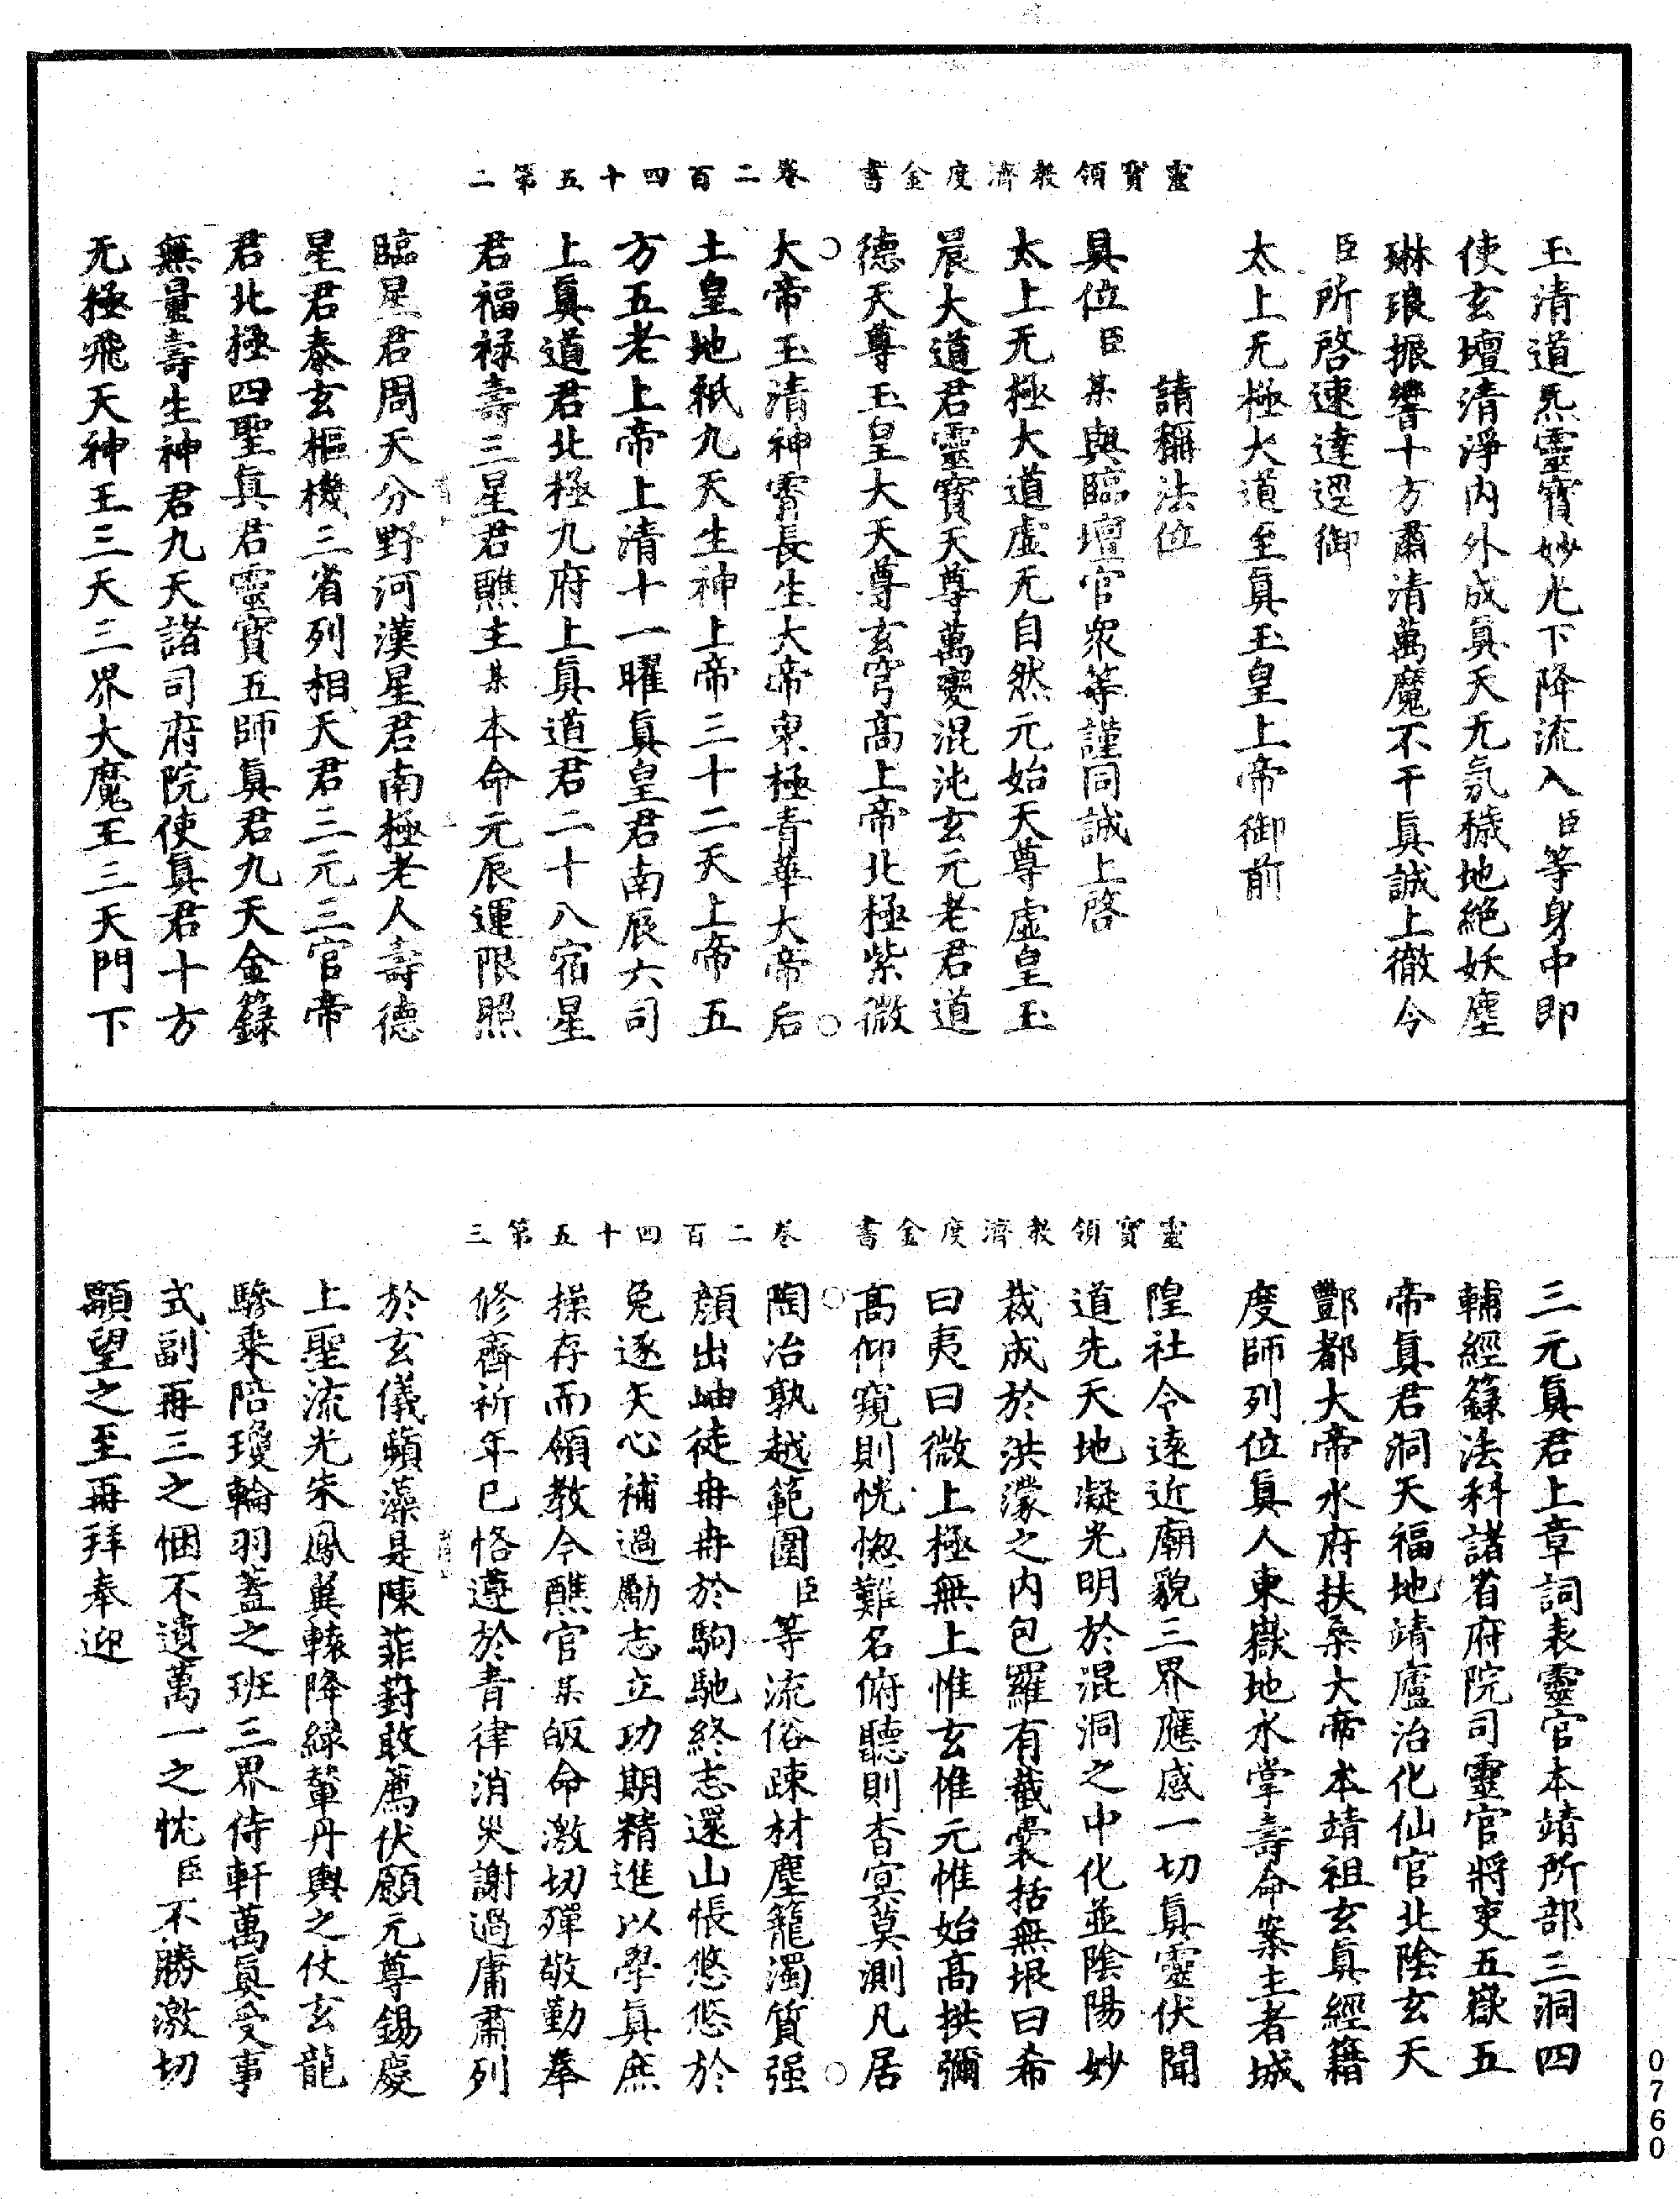 靈寶領教濟度金書　卷二百四十五第二
玉清道炁靈寶妙光下降流入臣等身中即
使玄壇清淨內外成真天无氛穢地絕妖塵
琳琅振響十方肅清萬魔不干真誠上徹今
臣所啓速達逕御
太上无極大道至真玉皇上帝御前
請稱法位
具位臣某與臨壇官衆等謹同誠上啓
太上无極大道虛无自然元始天尊虛皇玉
晨大道君靈寶天尊萬變混沌玄元老君道
德天尊玉皇大天尊玄穹高上帝北極紫微
大帝玉清神霄長生大帝東極青華大帝后
土皇地祇九天生神上帝三十二天上帝五
方五老上帝上清十一曜真皇君南辰六司
上真道君北極九府上真道君二十八宿星
君福祿壽三星君醮主某本命元辰運限照
臨星君周天分野河漢星君南極老人壽德
星君泰玄樞機三省列相天君三元三官帝
君北極四聖真君靈寶五師真君九天金籙
無量壽生神君九天諸司府院使真君十方
无極飛天神王三天三界大魔王三天門下
靈寶領教濟度金書　卷二百四十五第三
三元真君上章詞表靈官本靖所部三洞四
輔經籙法科諸省府院司靈官將吏五嶽五
帝真君洞天福地靖廬治化仙官北陰玄天
酆都大帝水府扶桑大帝本靖祖玄真經籍
度師列位真人東嶽地水掌壽命案主者城
隍社令遠近廟貌三界應感一切真靈伏聞
道先天地凝光明於混洞之中化並陰陽妙
裁成於洪濛之內包羅有截囊括無垠曰希
曰夷曰微上極無上惟玄惟元惟始高拱彌
高仰窺則恍惚難名俯聽則杳冥莫測凡居
陶冶孰越範圍臣等流俗疎材塵籠濁質强
顏出岫徒冉冉於駒馳終志還山悵悠悠於
兔逐矢心補過勵志立功期精進以學真庶
操存而領教今醮官某皈命激切殫敬勤拳
修齋祈年已恪遵於青律消災謝過庸肅列
於玄儀蘋藻是陳菲葑敢薦伏願元尊錫慶
上聖流光朱鳳冀轅降綠輦丹輿之仗玄龍
驂乘陪瓊輪羽蓋之班三界侍軒萬真受事
式副再三之悃不遺萬一之忱臣不勝激切
顒望之至再拜奉迎
0760